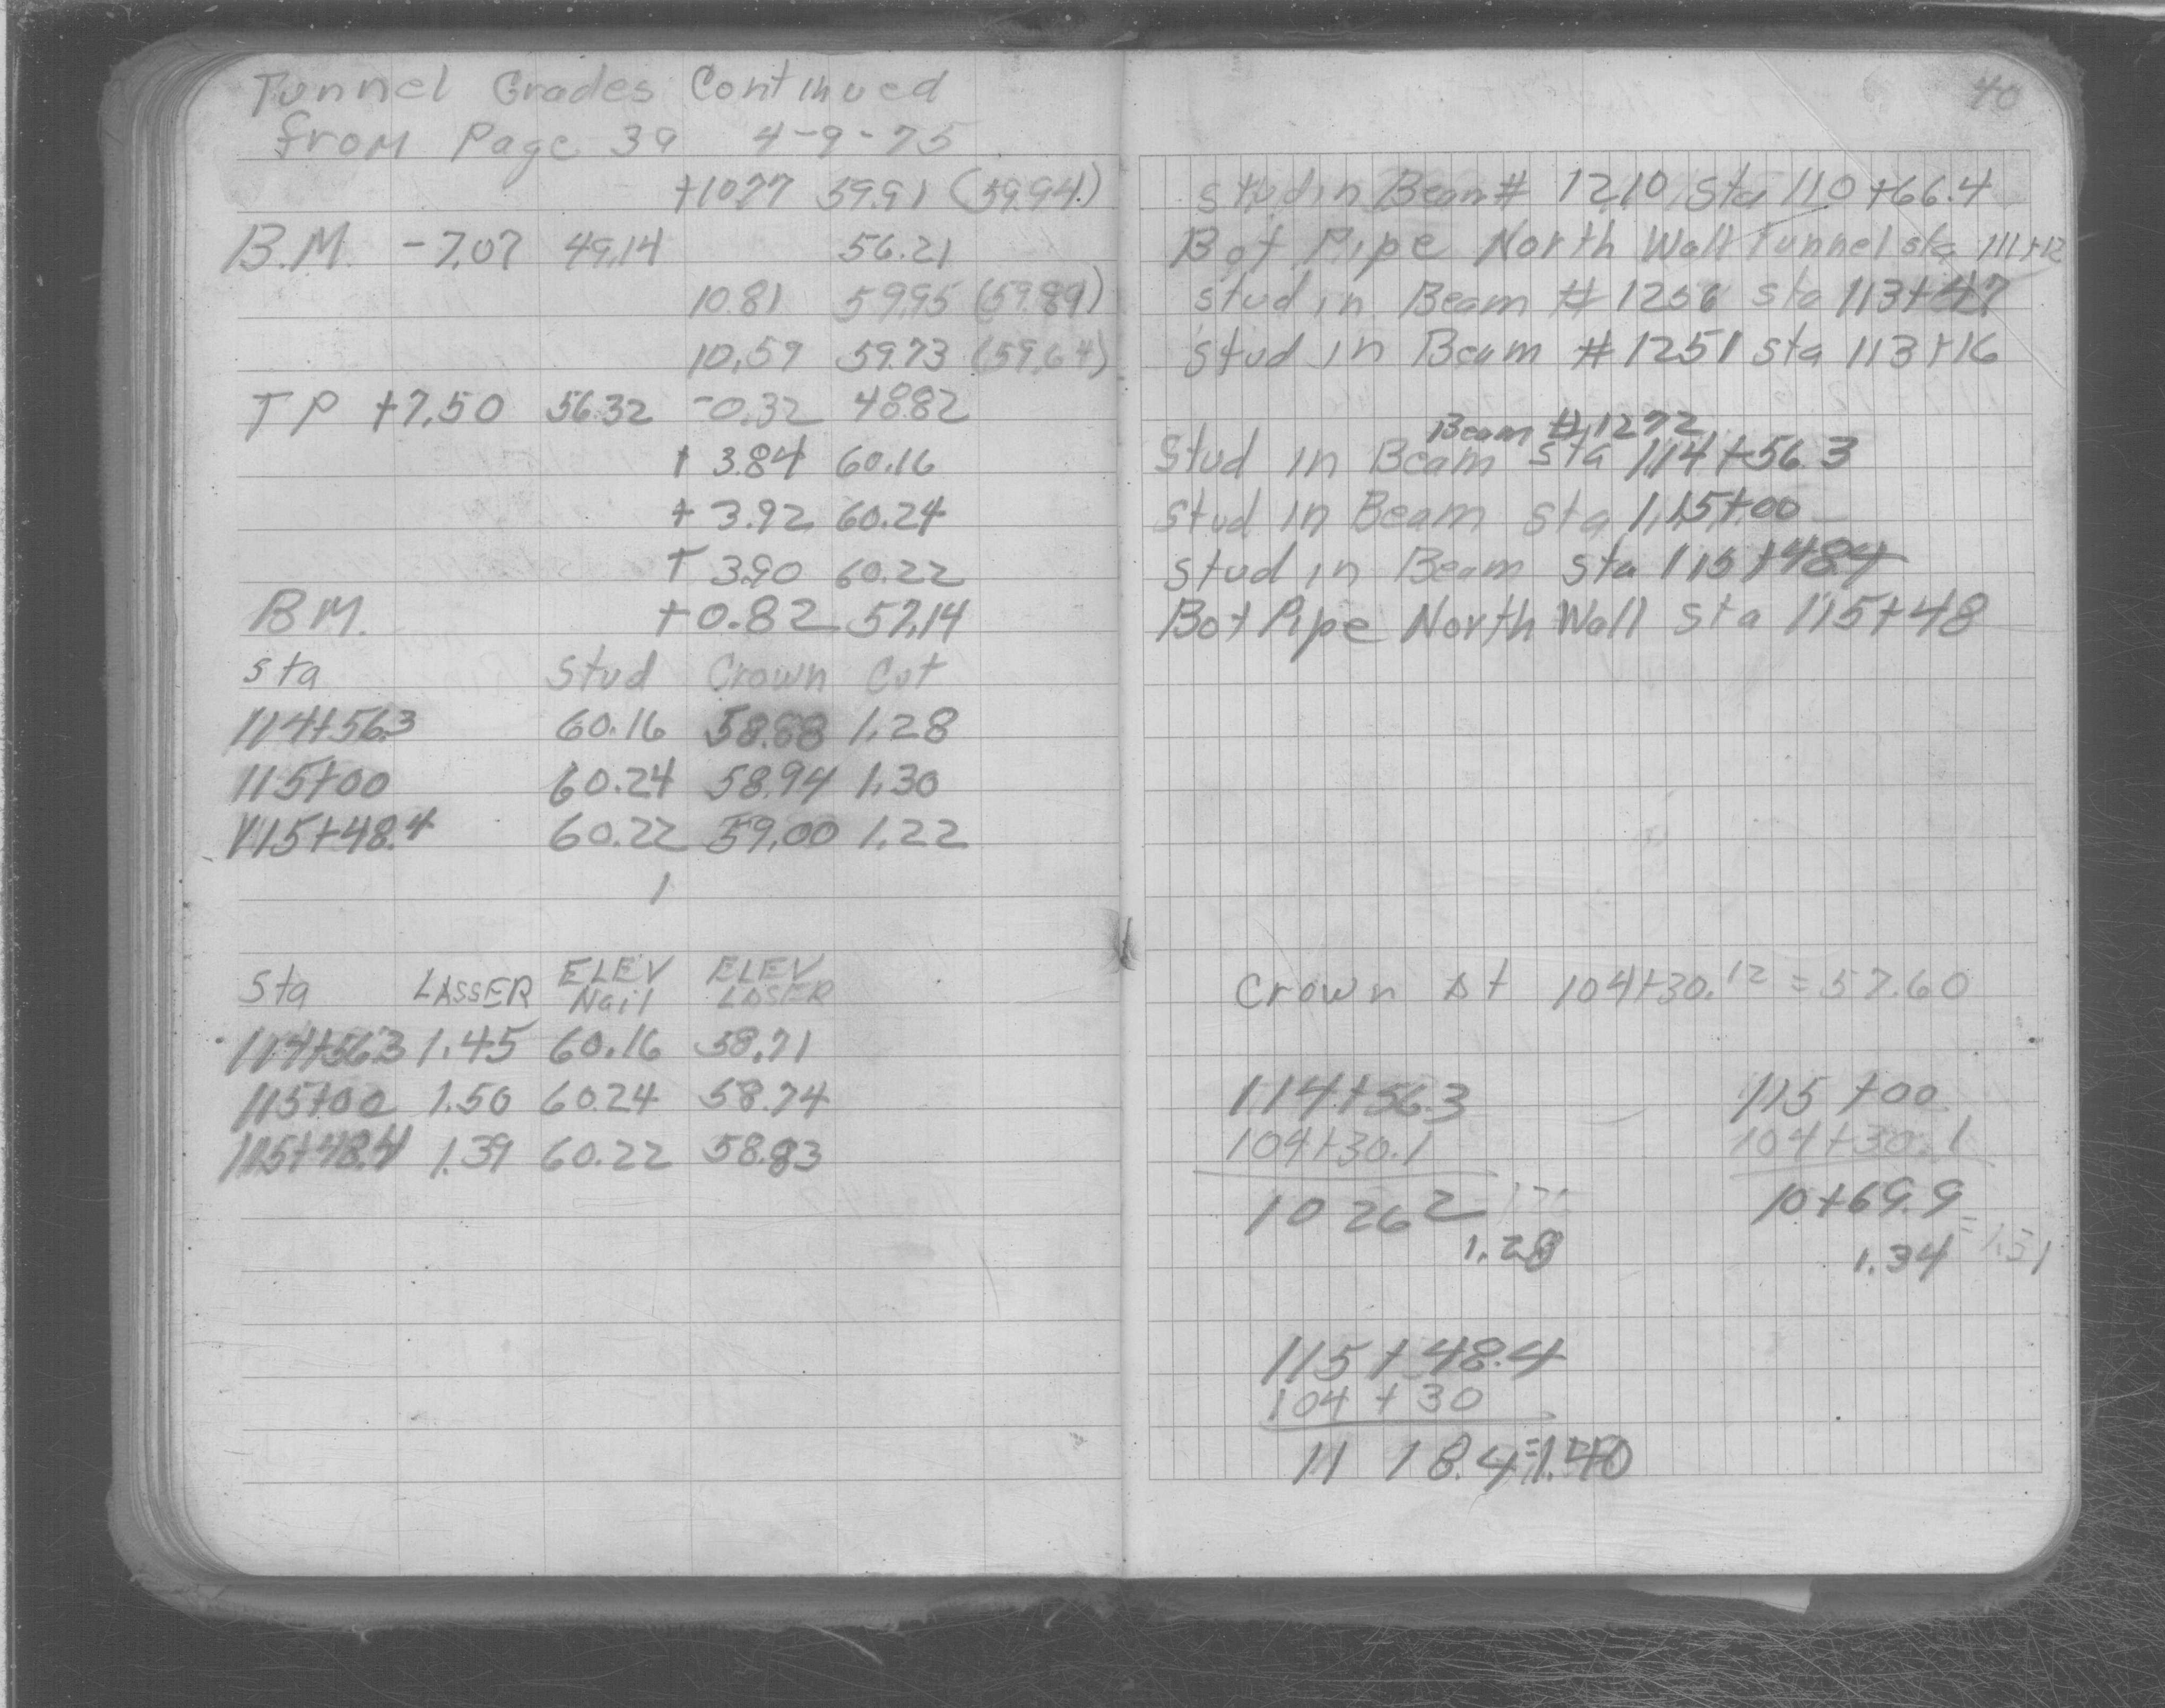 Tunnel Grades Continued
from Page 39 4-9-75
+10.77 59.91 (59.94)
B.M. -7.07 49.14 56.21
10.81 59.95 (59.89)
10.59 59.73 (59.64)
TP +7.50 56.32 -0.32 48.82
+3.84 60.16
+3.92 60.24
+3.90 60.22
BM. +0.82 57.14
Sta Stud Crown Cut
114+56.3 60.16 58.88 1.28
115+00 60.24 58.94 1.30
115+48.4 60.22 59.00 1.22
Sta LASSER ELEV Nail ELEV LASER
114+56.3 1.45 60.16 58.71
115+00 1.50 60.24 58.74
115+48.4 1.39 60.22 58.83
40
Stud in Beam # 1210 Sta 110+66.4
Bot Pipe North Wall Tunnel sta 111+12
stud in Beam # sta 113+47
Stud in Beam #1251 sta 113+16
Beam #1272
Stud in Beam sta 114+56.3
Stud in Beam Sta 115+00
Stud in Beam Sta 115+48.4
Bot Pipe North Wall Sta 115+48
Crown At 104+30.12 = 57.60
114+56.3 115+00
104+30.1 104+30.1
10 26 2 10+69.9
1.28 1.34 = 1.31
115+48.4
104+30
11 18.4=1.40